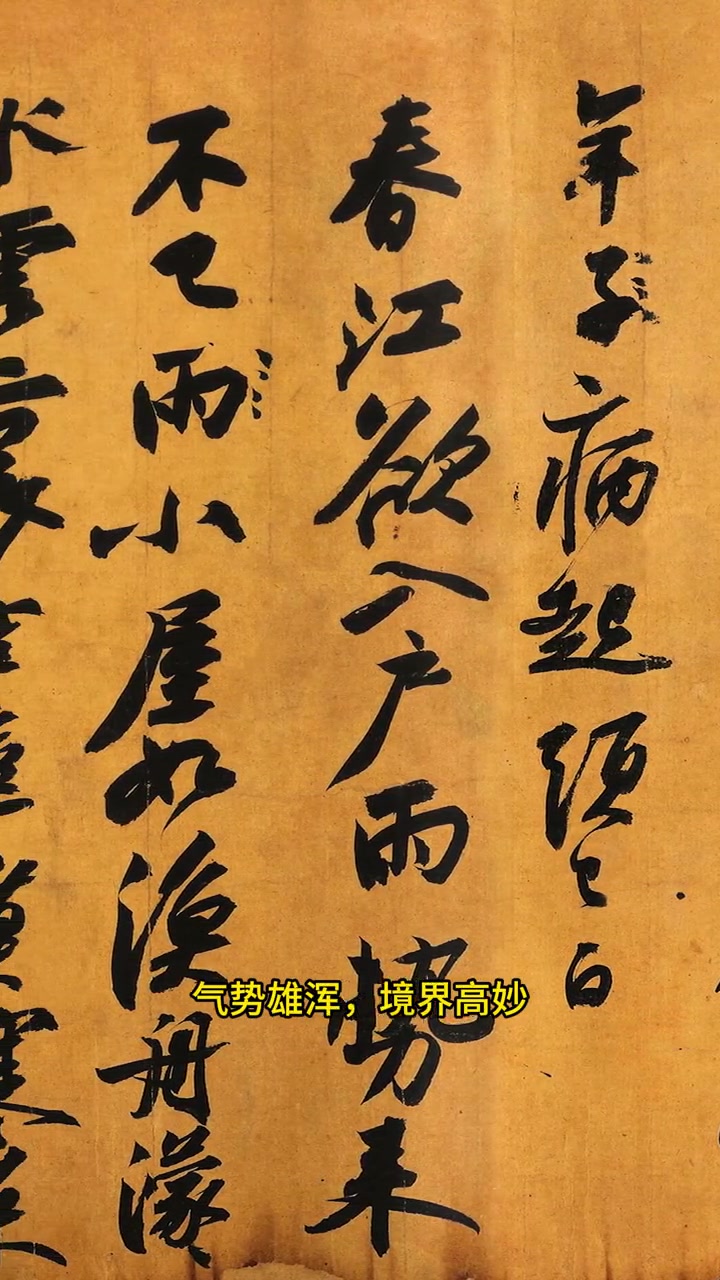 年子病起頭已白
春江欲入戶雨勢来
不已雨小屋如漁舟濛
水雲裏
气势雄浑，境界高妙